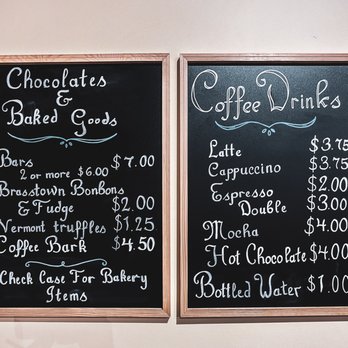 Chocolates
&
Baked Goods
Bars $7.00
2 or more $6.00
Brasstown Bonbons
& Fudge $2.00
Vermont truffles $1.25
Coffee Bark $4.50
Check Case For Bakery
Items
Coffee Drinks
Latte $3.75
Cappuccino $3.75
Espresso $2.00
Double $3.00
Mocha $4.00
Hot Chocolate $4.00
Bottled Water $1.00